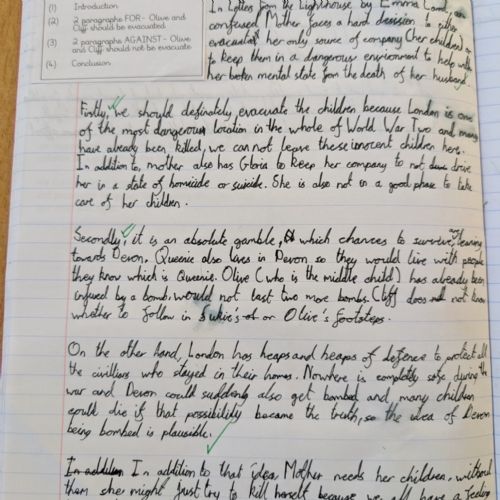 (1) Introduction
(2) 2 paragraphs FOR - Olive and
Cliff should be evacuated
(3) 2 paragraphs AGAINST - Olive
and Cliff should not be evacuate
(4) Conclusion
In Letters from the Lighthouse by Emma Carroll, a
confused Mother faces a hard decision to either
evacuate her only source of company (her children) or
to keep them in a dangerous environment to help with
her broken mental state from the death of her husband.
Firstly, we should definately evacuate the children because London is one
of the most dangerous location in the whole of World War Two and many
have already been killed, we can not leave these innocent children here.
In addition to, mother also has Gloria to keep her company to not drive
her in a state of homicide or suicide. She is also not in a good phase to take
care of her children.
Secondly, it is an absolute gamble, which chances to survive are leaning
towards Devon. Queenie also lives in Devon so they would live with people
they know which is Queenie. Olive (who is the middle child) has already been
injured by a bomb, would not last two more bombs. Cliff does not know
whether to follow in Sukie's or Olive's footsteps.
On the other hand, London has heaps and heaps of defence to protect all
the civilians who stayed in their homes. Nowhere is completely safe during the
war and Devon could suddenly also get bombed and many children
could die if that possibility became the truth, so the idea of Devon
being bombed is plausible.
In addition In addition to that idea, Mother needs her children, without
them she might just try to kill herself because we all have a feeling